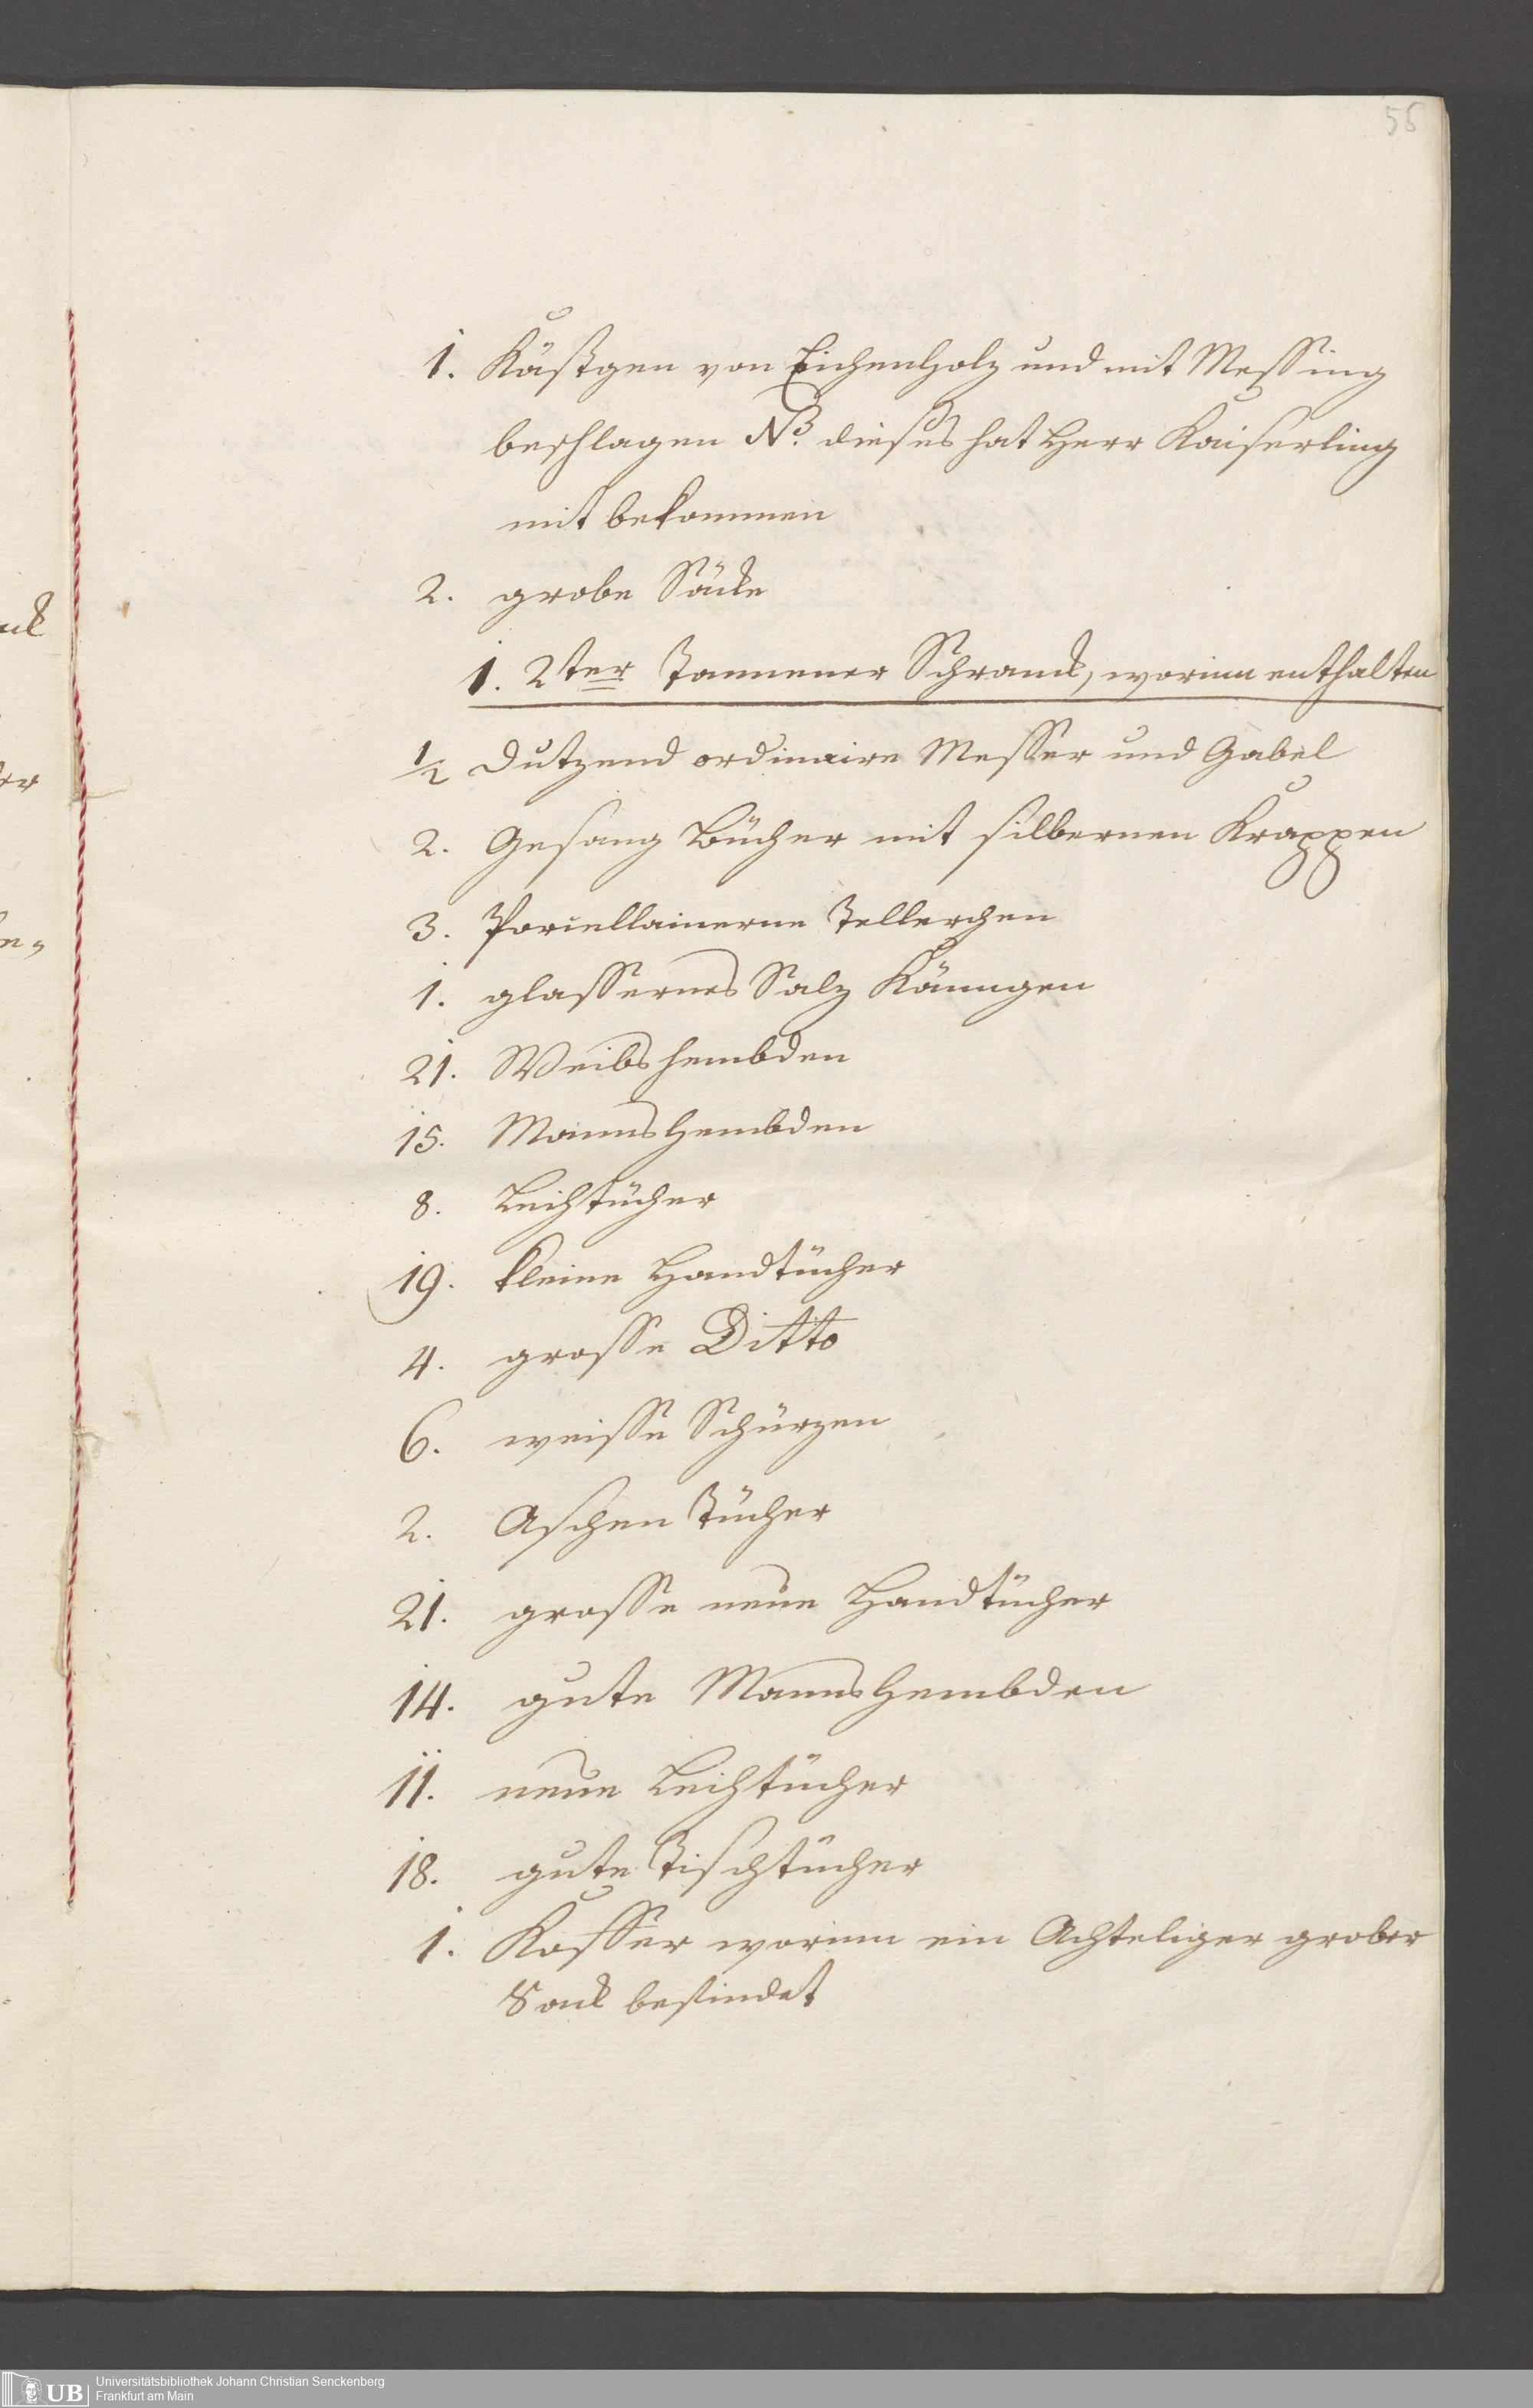 55
1. Käßtgen von Eichenholz und mit Messing
beschlagen NB. dieses hat Herr Kaiserling
mit bekommen
2. grobe Säcke
1. 2ter Tannener Schranck, worinn enthalten
1/2 Dutzend ordinaire Messer und Gabel
2. Gesang Bücher mit silbernen Krappen
3. Porcellainerne Tellerchen
1. glassernes Salz Känngen
21. Weibshembden
15. Mannshembden
8. Leihtücher
19. kleine Handtücher
4. grosse Ditto
6. weisse Schürzen
2. Aschen Tücher
21. grosse neue Handtücher
14. gute Mannshembden
11. neue Leihtücher
18. gute Tischtücher
1. Koffer worinn ein Achteliger grober
Sack befindet
UB
Universitätsbibliothek Johann Christian Senckenberg
Frankfurt am Main